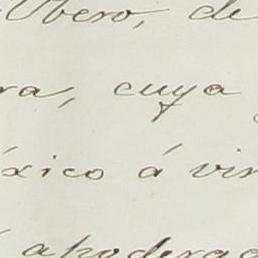 Obero, de
ra, cuya
éxico á vir
apoderga